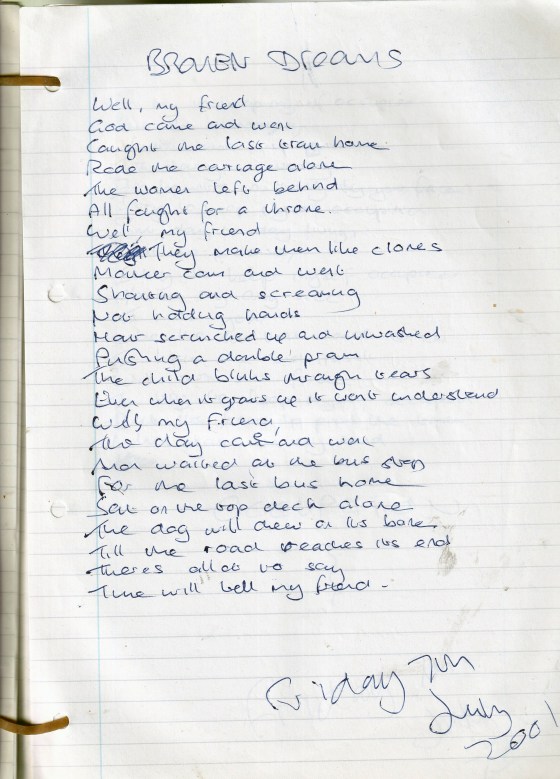 BROKEN DREAMS
Well, my friend
God came and went
Caught the last train home.
Rode the carriage alone
The women left behind
All fought for a throne.
Well, my friend
They make them like clones
Mother cam and went
Shouting and screaming
Not holding hands
Hair scrunched up and unwashed
Pushing a double pram
The child blinks through tears
Even when it grows up it wont understand
Well, my friend,
The day came and went
Man waited at the bus stop
For the last bus home
Sat on the top deck alone
The dog will chew on its bone.
Till the road reaches its end
Theres allot to say
Time will tell my friend.
Friday 7th
July
2001